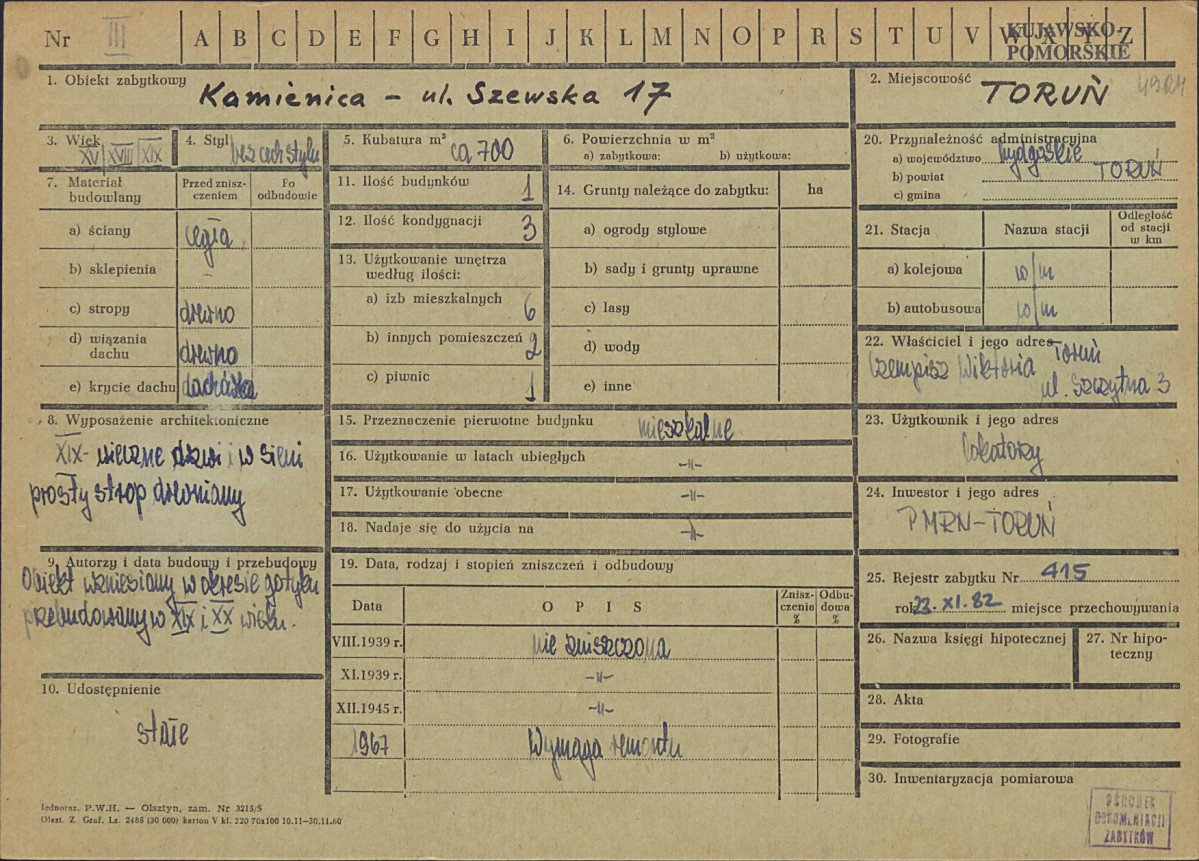 Nr III A B C D E F G H I J K L M N O P R S T U V W X Y Z
KUJAWSKO-
POMORSKIE
1. Obiekt zabytkowy Kamienica – ul. Szewska 17
2. Miejscowość TORUŃ
3. Wiek XV XVIII XIX
4. Styl bez cech stylu
5. Kubatura m³ ca 700
6. Powierzchnia w m²
a) zabytkowa: b) użytkowa:
7. Materiał budowlany
Przed zniszczeniem
Po odbudowie
a) ściany cegła
b) sklepienia –
c) stropy drewno
d) wiązania dachu drewno
e) krycie dachu dachówka
8. Wyposażenie architektoniczne
XIX-wieczne drzwi i w sieni
prosty strop drewniany
9. Autorzy i data budowy i przebudowy
Obiekt wzniesiony w okresie gotyku
przebudowany w XIX i XX wieku.
10. Udostępnienie
stałe
11. Ilość budynków 1
12. Ilość kondygnacji 3
13. Użytkowanie wnętrza
według ilości:
a) izb mieszkalnych 6
b) innych pomieszczeń 2
c) piwnic 1
14. Grunty należące do zabytku: ha
a) ogrody stylowe
b) sady i grunty uprawne
c) lasy
d) wody
e) inne
15. Przeznaczenie pierwotne budynku mieszkalne
16. Użytkowanie w latach ubiegłych -"-
17. Użytkowanie obecne -"-
18. Nadaje się do użycia na -"-
19. Data, rodzaj i stopień zniszczeń i odbudowy
Data OPIS Zniszczenia % Odbudowa %
VIII.1939 r. nie zniszczona
XI.1939 r. -"-
XII.1945 r. -"-
1967 Wymaga remontu
20. Przynależność administracyjna
a) województwo bydgoskie
b) powiat TORUŃ
c) gmina
21. Stacja Nazwa stacji Odległość od stacji w km
a) kolejowa w/m
b) autobusowa w/m
22. Właściciel i jego adres Toruń
Czempisz Wiktoria ul. Szczytna 3
23. Użytkownik i jego adres
lokatorzy
24. Inwestor i jego adres
PMRN-TORUŃ
25. Rejestr zabytku Nr 415
rok 22. XI. 82 miejsce przechowywania
26. Nazwa księgi hipotecznej
27. Nr hipoteczny
28. Akta
29. Fotografie
30. Inwentaryzacja pomiarowa
OŚRODEK
DOKUMENTACJI
ZABYTKÓW
Jednoraz. P.W.H. — Olsztyn, zam. Nr 3215/S
Olszt. Z. Graf. Lz. 2485 (30 000) karton V kl. 220 70x100 10.11-30.11.60